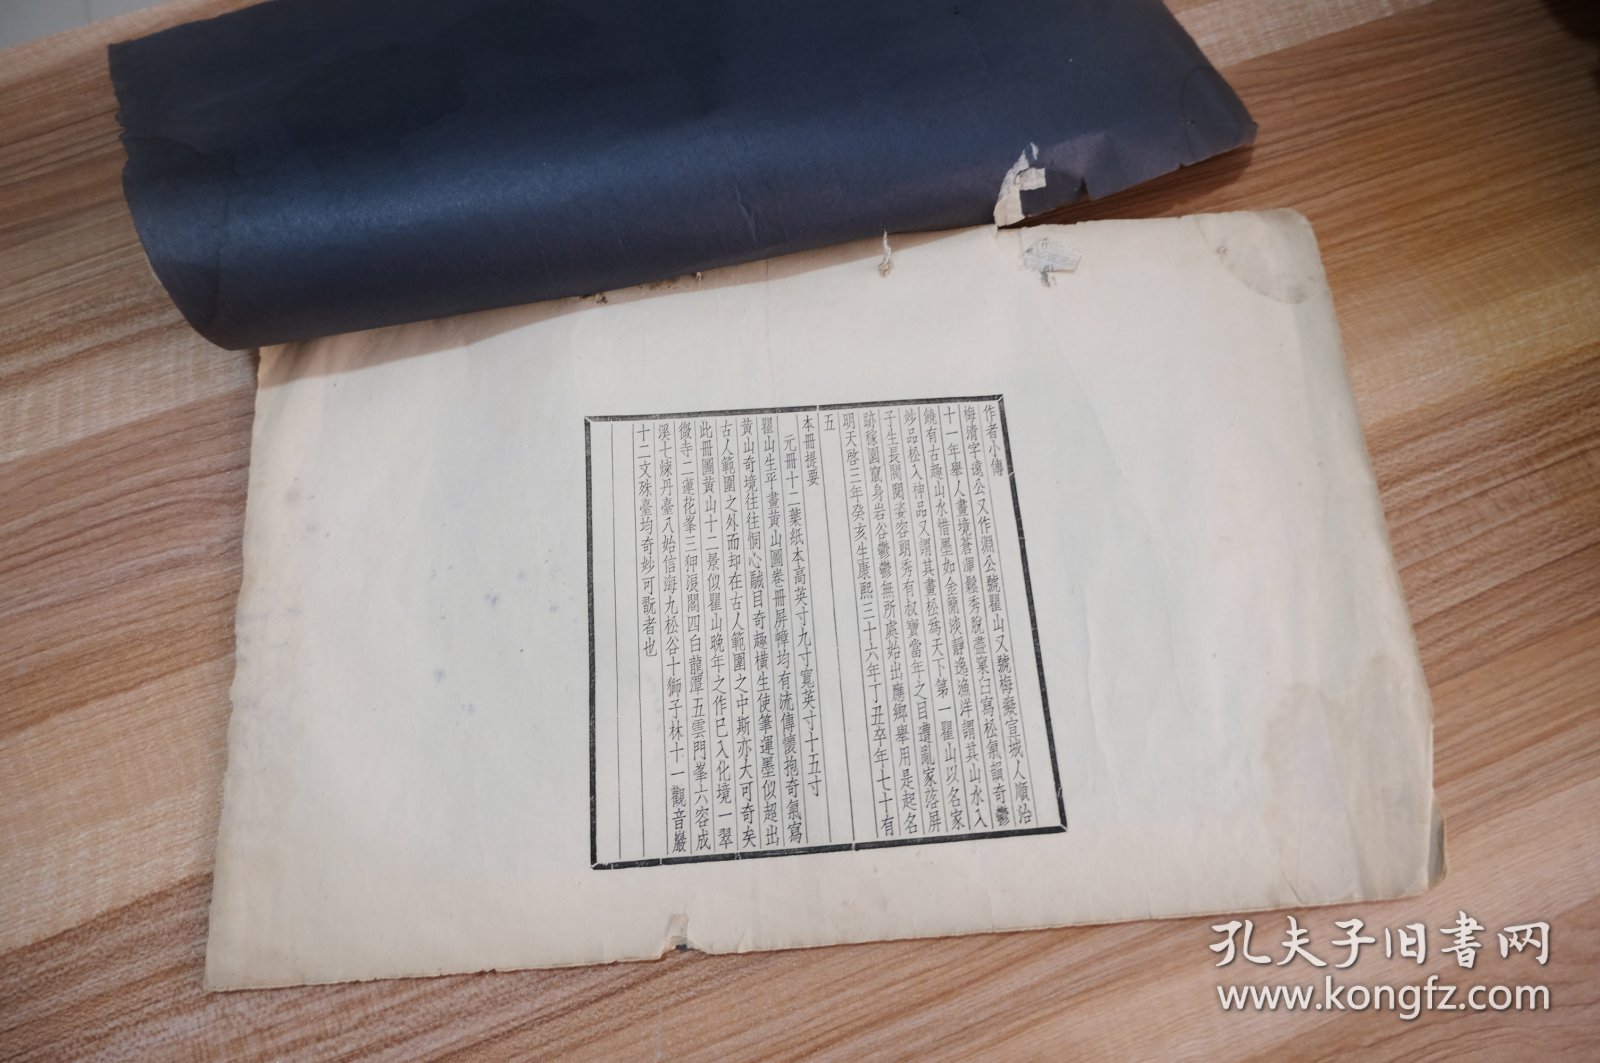 作者小傳
梅清字遠公又作淵公號瞿山又號梅癡宣城人順治
十一年舉人畫境蒼渾鬆秀脫盡窠臼寫松氣韻奇鬱
饒有古趣山水惜墨如金簡淡靜逸漁洋謂其山水入
妙品松入神品又謂其畫松為天下第一瞿山以名家
子生長閥閱姿容朗秀有叔寶當年之目遭亂家落屏
跡稼園竄身岩谷鬱鬱無所處始出應鄉舉用是起名
明天啓三年癸亥生康熙三十六年丁丑卒年七十有
五
本冊提要
元冊十二葉紙本高英寸九寸寬英寸十五寸
瞿山生平畫黃山圖卷冊屏幛均有流傳懷抱奇氣寫
黃山奇境往往恫心駴目奇趣橫生使筆運墨似超出
古人範圍之外而却在古人範圍之中斯亦大可奇矣
此冊圖黃山十二景似瞿山晚年之作已入化境一翠
微寺二蓮花峯三狎浪閣四白龍潭五雲門峯六容成
溪七煉丹臺八始信海九松谷十獅子林十一觀音巖
十二文殊臺均奇妙可翫者也
孔夫子旧書网
www.kongfz.com